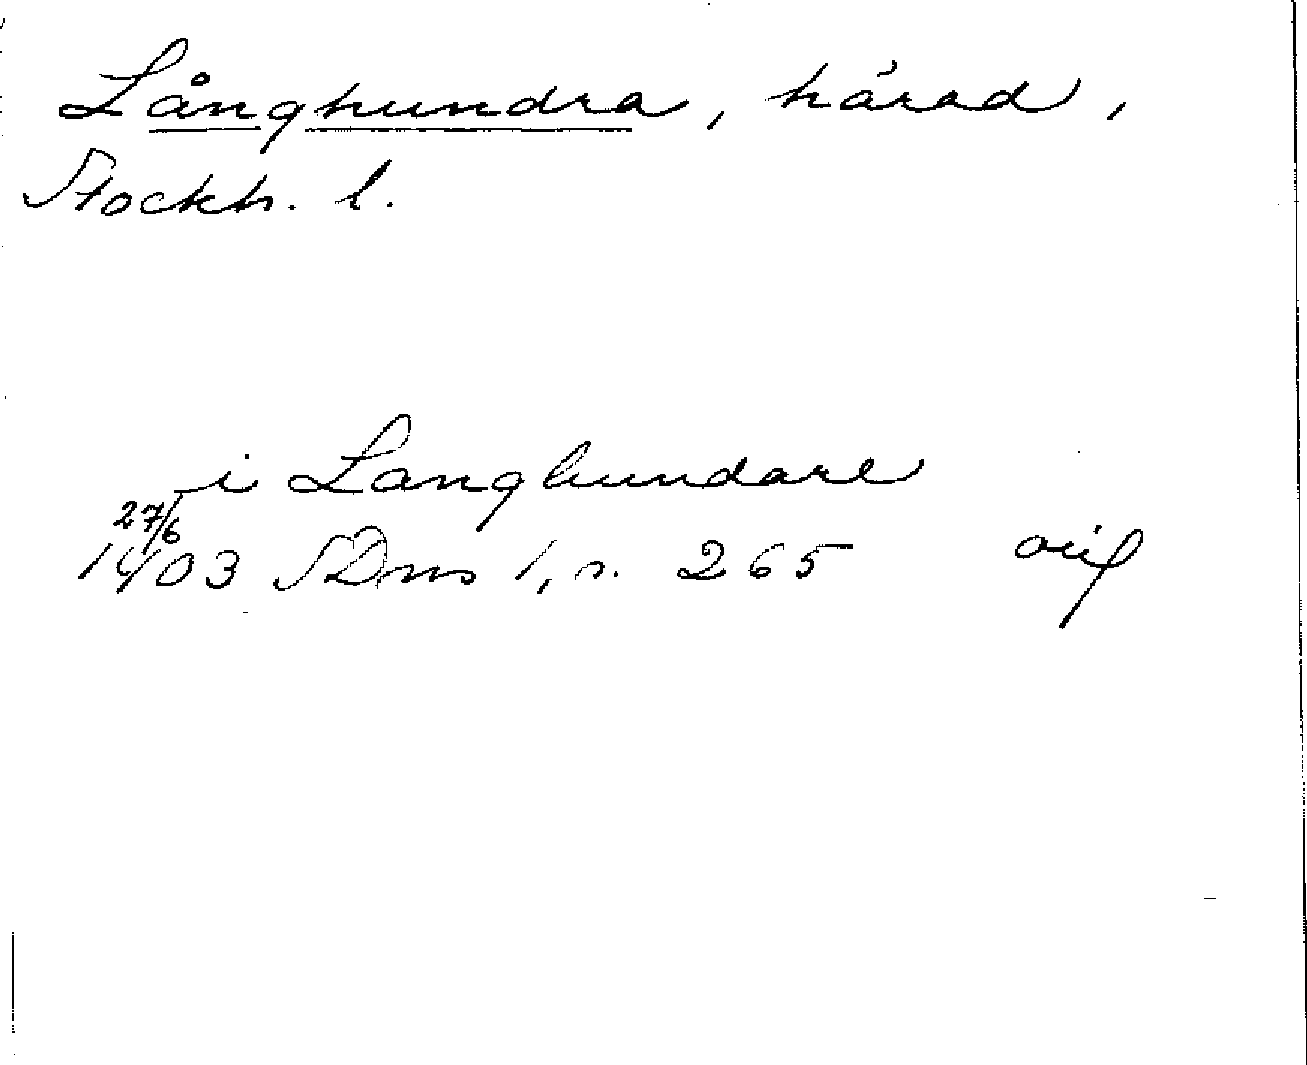 Långhundra, härad,
Stockh. l.
i Langhundare
27/6
1403 SDns 1, s. 265 orig